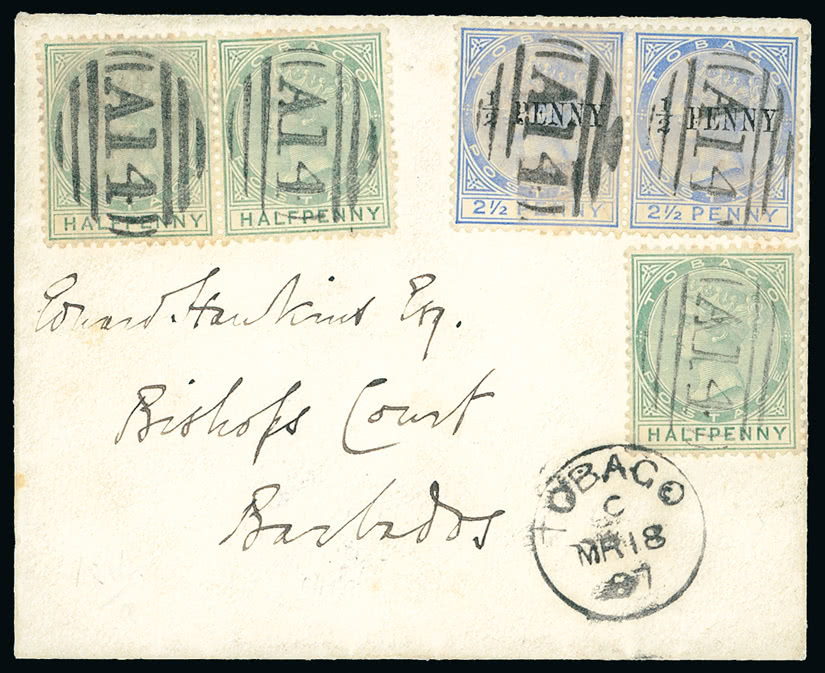 TOBAGO
A14
HALFPENNY
TOBAGO
A14
HALFPENNY
TOBAGO
½ PENNY
A14
POSTAGE
2½ PENNY
TOBAGO
½ PENNY
A14
POSTAGE
2½ PENNY
TOBAGO
A14
POSTAGE
HALFPENNY
Edward Hawkins Esq.
Bishops Court
Barbados
TOBAGO
C
MR 18
87